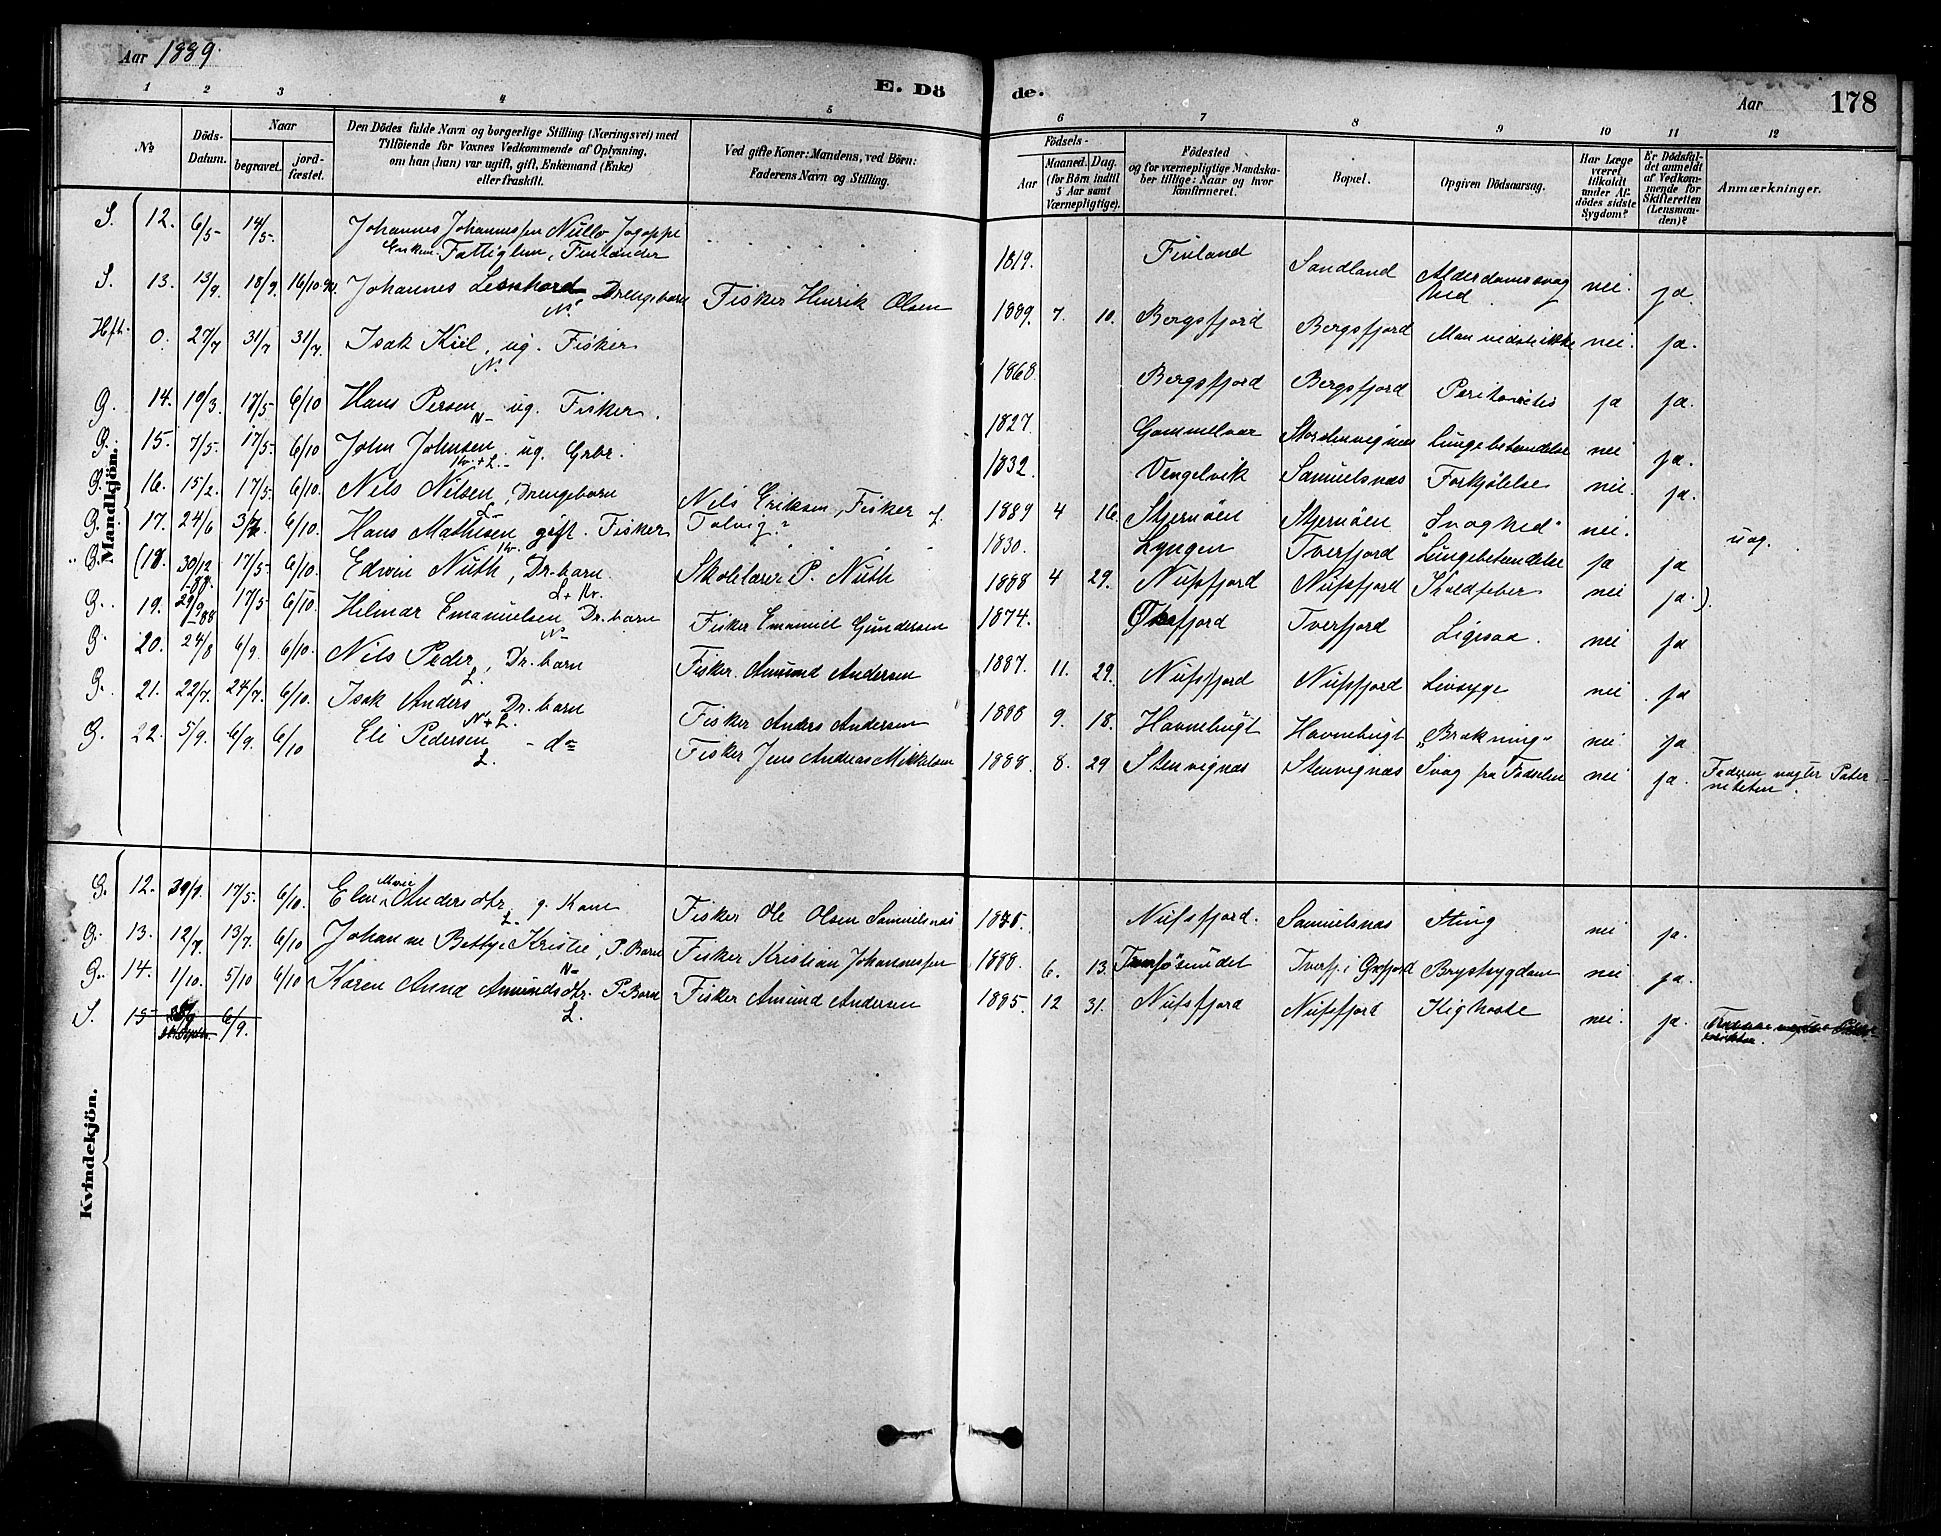 Aar 1889.
E. Döde.
Aar 178
1 2 3 4 5 6 7 8 9 10 11 12
No
Döds-Datum.
Naar
begravet.
jord-fæstet.
Den Dödes fulde Navn og borgerlige Stilling (Næringsvei) med
Tilföiende for Voxnes Vedkommende af Oplysning,
om han (hun) var ugift, gift, Enkemand (Enke)
eller fraskilt.
Ved gifte Koner: Mandens, ved Börn:
Faderens Navn og Stilling.
Födsels-
Aar
Maaned. Dag.
(for Börn indtil
5 Aar samt
Værnepligtige).
Födested
og for værnepligtige Mandska-
ber tillige: Naar og hvor
konfirmeret.
Bopæl.
Opgiven Dödsaarsag.
Har Læge
været
tilkaldt
under Af-
dödes sidste
Sygdom?
Er Dödsfal-
det anmeldt
af Vedkom-
mende for
Skifteretten
(Lensman-
den)?
Anmærkninger.
Mandkjön.
S. 12. 6/5- 14/5- Johannes Johannessen Nullo Jogoppi 1819. Finland Sandland Alderdomssvaghed nei ja.
Fattiglem, Finlænder
S. 13. 13/9. 18/9. 16/10 Johannes Leonhard Drengebarn N. Fisker Henrik Olsen 1889. 7. 10. Bergsfjord Bergsfjord Man vidste ikke nei. ja.
Hft. 0. 27/7 31/7 31/7. Isak Kiil, ug. Fisker N. 1868. Bergsfjord Bergsfjord ja ja.
G. 14. 19/3. 17/5- 6/10 Hans Persen ug. Fisker. N- 1827 Gammelvær Lungebetændelse nei ja.
G. 15. 7/5- 17/5- 6/10 John Johnsen ug. Grbr. 1832. Vengelvik Samuelsnæs Forkjølelse nei. ja.
G. 16. 15/2. 17/5- 6/10. Nils Nilsen, Drengebarn L- Nils Eriksen, Fisker L. 1889 4 16. Stjernöen Stjernöen "Svaghed" nei. uæg.
G. 17. 24/6 6/10. Hans Mathisen gift. Fisker Tolvig? 1830. Lyngen Tverfjord "Lungebetændelse ja ja
G. (18. 30/12 -88. 17/5- 6/10. Edvin Nuth, Dr. barn. Skolelærer P. Nuth 1888 4 29. Nufsfjord Nufsfjord nei ja.)
G. 19. 29/9 -88 17/5 6/10. Hilmar Emanuelsen Dr. barn N- Fisker Emanuel Gundersen 1874. Øksfjord Tverfjord Ligesaa. nei ja
G. 20. 24/8 6/9. 6/10. Nils Peder, Dr. barn L. Fisker Amund Andersen 1887. 11. 29. Nufsfjord Nufsfjord Livsyge nei ja
G. 21. 22/7. 24/7. 6/10. Isak Anders, Dr. barn N+L. Fisker Anders Andersen 1888 9. 18. Havnebugt Havnebugt "Brækning" nei ja
G. 22. 5/9. 6/9. 6/10 Eli Pedersen - do L. Fisker Jens Andreas Mikkelsen 1888. 8. 29 Stenvignæs Stenvignæs Svag fra Fødselen nei ja. Faderen nægter Paterniteten.
Kvindekjön.
G. 12. 17/5. 6/10. Elen Marie Andersdtr. g. Kone L. Fisker Ole Olsen Samuelsnæs Nufsfjord. Samuelsnæs Sting nei ja.
G. 13. 12/7. 13/7. 6/10 Johanne Bettye Kristie, P. Barn N- Fisker Kristian Johannessen 1888. 6. 13. Tverfj. i Øxfjord Brystsygdom nei ja.
G. 14. 1/10. 5/10 6/10 Karen Anna Amundsdtr. P. Barn L. Fisker Amund Andersen 1885 12 31. Nufsfjord Nufsfjord Kighoste nei ja.
S. 15 6/9.